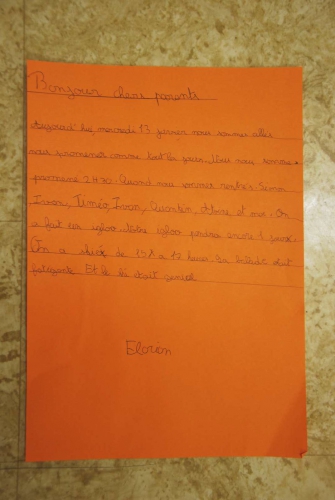 Bonjour chers parents
Aujourd'hui mercredi 13 janvier nous sommes allés
nous promener comme tout les jours. Nous nous sommes
promené 2H30. Quand nous sommes rentrés Simon
Iwan, Timéo, Ivon, Quentin, et moi. On
a fait un igloo. Notre igloo
On a skié de 15h a 17 heures. La balade était
fatigante. Et le ski était génial
Eloran